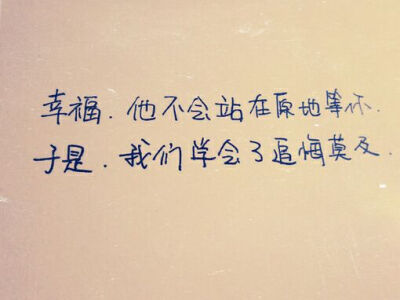 幸福.他不会站在原地等你.
于是.我们学会了追悔莫及.